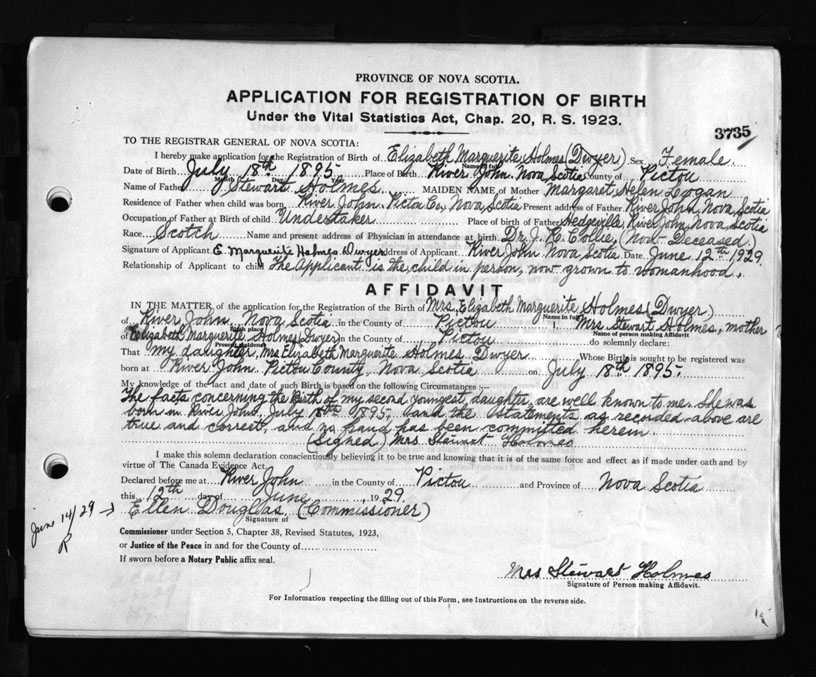 PROVINCE OF NOVA SCOTIA.
APPLICATION FOR REGISTRATION OF BIRTH
Under the Vital Statistics Act, Chap. 20, R. S. 1923.
3735
TO THE REGISTRAR GENERAL OF NOVA SCOTIA:
I hereby make application for the Registration of Birth of Elizabeth Marguerite Holmes (Dwyer) Sex Female.
Date of Birth July 18th 1895. Place of Birth River John, Nova Scotia County of Pictou
Name of Father J. Stewart Holmes MAIDEN NAME of Mother Margaret Helen Logan
Residence of Father when child was born River John. Pictou Co, Nova Scotia Present address of Father River John, Nova Scotia
Occupation of Father at Birth of child Undertaker Place of Birth of Father Hedgeville, River John, Nova Scotia
Race Scotch Name and present address of Physician in attendance at birth Dr. J. R. Collie, (Now Deceased.)
Signature of Applicant E. Marguerite Holmes Dwyer address of Applicant River John Nova Scotia Date June 12th 1929.
Relationship of Applicant to child The Applicant is the child in person, now grown to womanhood.
AFFIDAVIT
IN THE MATTER of the application for the Registration of the Birth of Mrs. Elizabeth Marguerite Holmes (Dwyer)
Name in full
of River John, Nova Scotia in the County of Pictou I, Mrs Stewart Holmes, mother
Birth place Name of person making Affidavit
of Elizabeth Marguerite Holmes (Dwyer) in the County of Pictou do solemnly declare:
Present residence
That my daughter, Mrs Elizabeth Marguerite Holmes Dwyer Whose Birth is sought to be registered was
born at River John Pictou County, Nova Scotia on July 18th 1895.
My knowledge of the fact and date of such Birth is based on the following Circumstances:—
The facts concerning the Birth of my second youngest daughter, are well known to me. She was
born in River John, July 18th 1895. and the statements as recorded above are
true and correct, and no fraud has been committed herein
(Signed) Mrs. Stewart Holmes
I make this solemn declaration conscientiously believing it to be true and knowing that it is of the same force and effect as if made under oath and by
virtue of The Canada Evidence Act.
Declared before me at River John in the County of Pictou and Province of Nova Scotia
this 12th day of June, 1929.
June 14/29 → Ellen Douglas, (Commissioner)
R
Signature of
Commissioner under Section 5, Chapter 38, Revised Statutes, 1923,
or Justice of the Peace in and for the County of
If sworn before a Notary Public affix seal.
Mrs Stewart Holmes
Signature of Person making Affidavit.
For Information respecting the filling out of this Form, see Instructions on the reverse side.